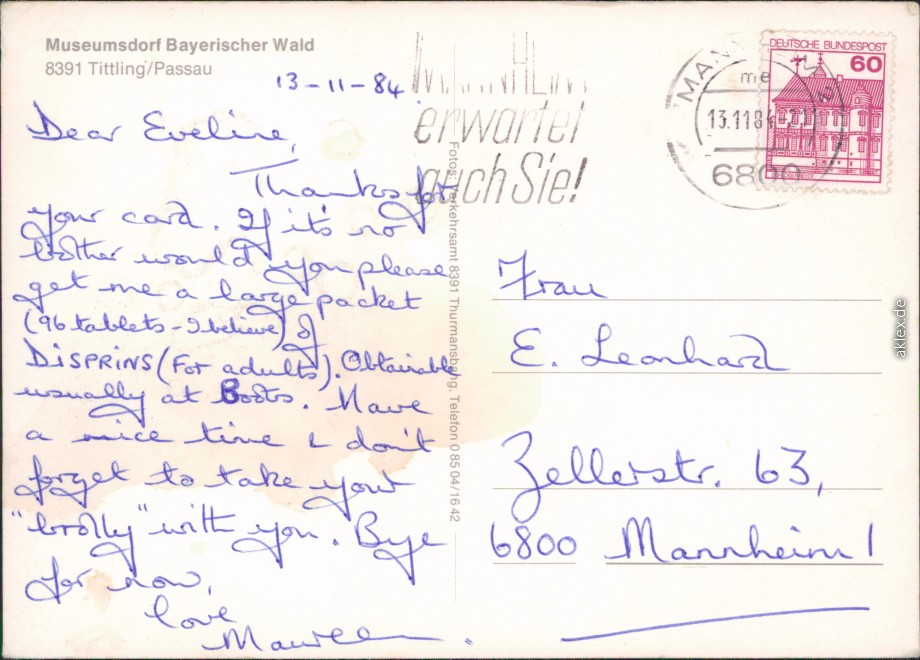 Museumsdorf Bayerischer Wald
8391 Tittling/Passau
13-11-84
Dear Eveline,
Thanks for
your card. If it's no
bother would you please
get me a large packet
(96 tablets - I believe) of
DISPRINS (For adults). Obtainable
usually at Boots. Have
a nice time & don't
forget to take your
"brolly" with you. Bye
for now,
love
Maureen.
Fotos: Verkehrsamt 8391 Thurmansbang, Telefon 0 85 04/16 42
MANNHEIM
erwartet
auch Sie!
MANNHEIM
me
13.11.84-21
6800
DEUTSCHE BUNDESPOST
60
Frau
E. Leonhard
Zellerstr. 63,
6800 Mannheim 1
aklex.de